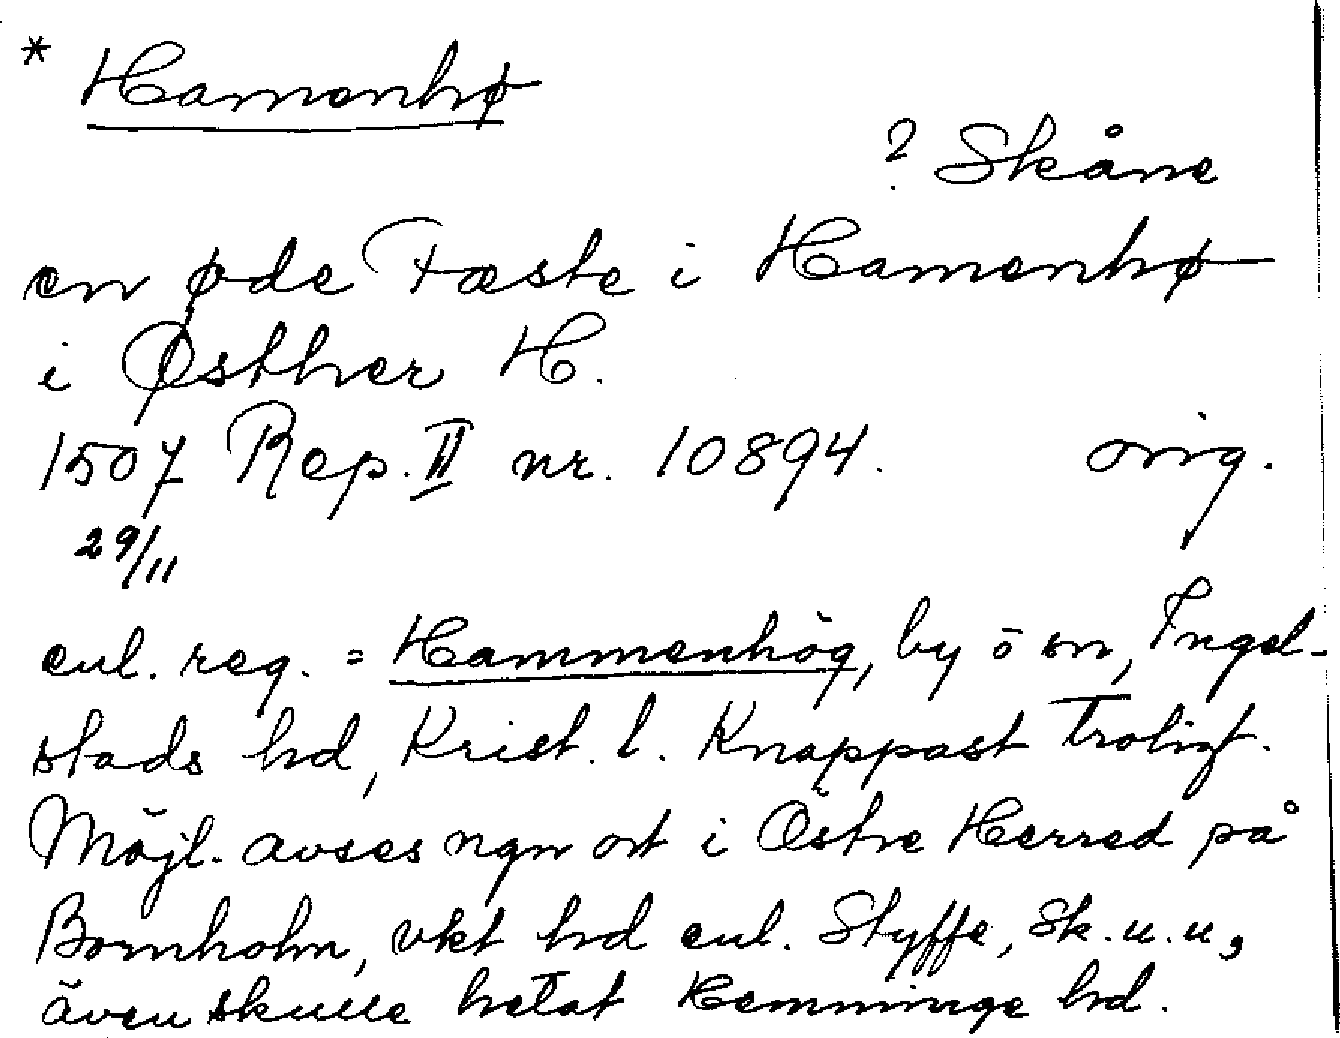 * Hamenhø
? Skåne
en øde Fæste i Hamenhø
i Østher H.
1507 Rep. II nr. 10894. orig.
29/11
enl. reg. = Hammenhög, by o sn, Ingel-
stads hd, Krist. l. Knappast troligt.
Möjl. avses ngn ort i Östre Herred på
Bornholm, vkt hd enl. Styffe, Sk. u. u.,
även skulle hetat Hemminge hd.